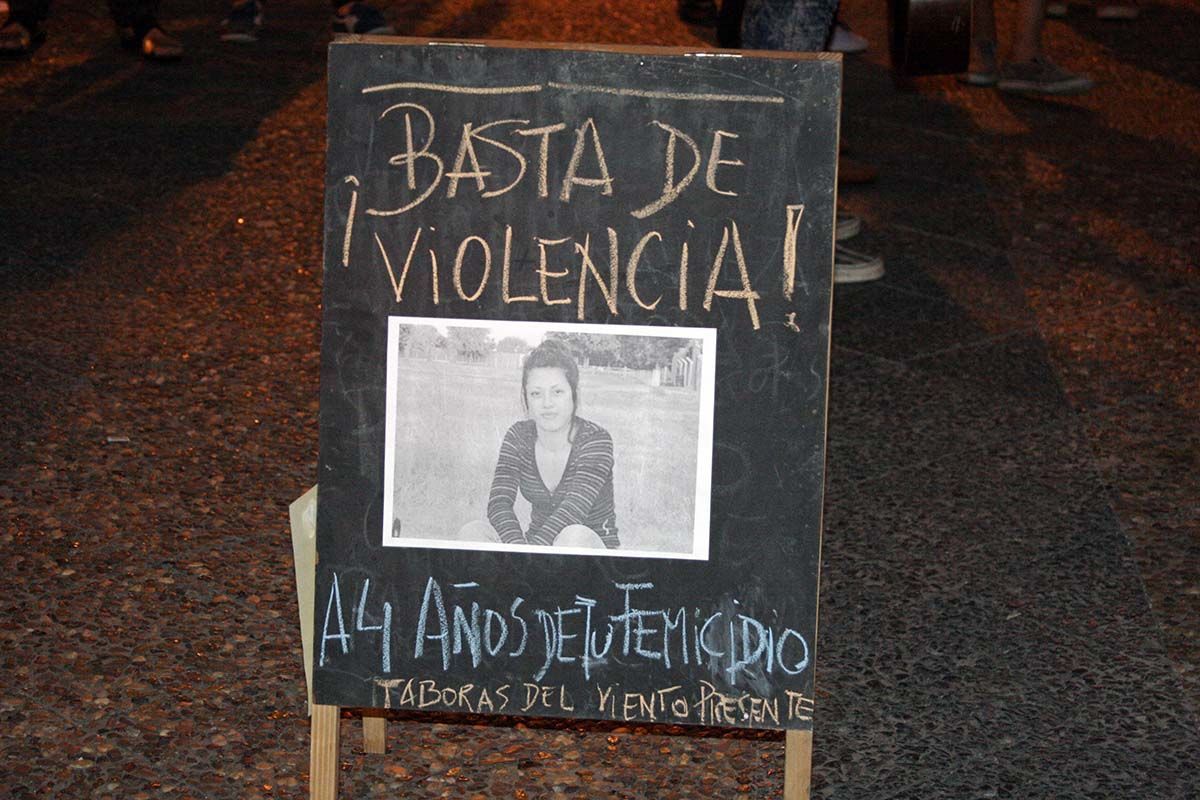 ¡BASTA DE
VIOLENCIA!
A 4 AÑOS DE TU FEMICIDIO
TABORAS DEL VIENTO PRESENTE